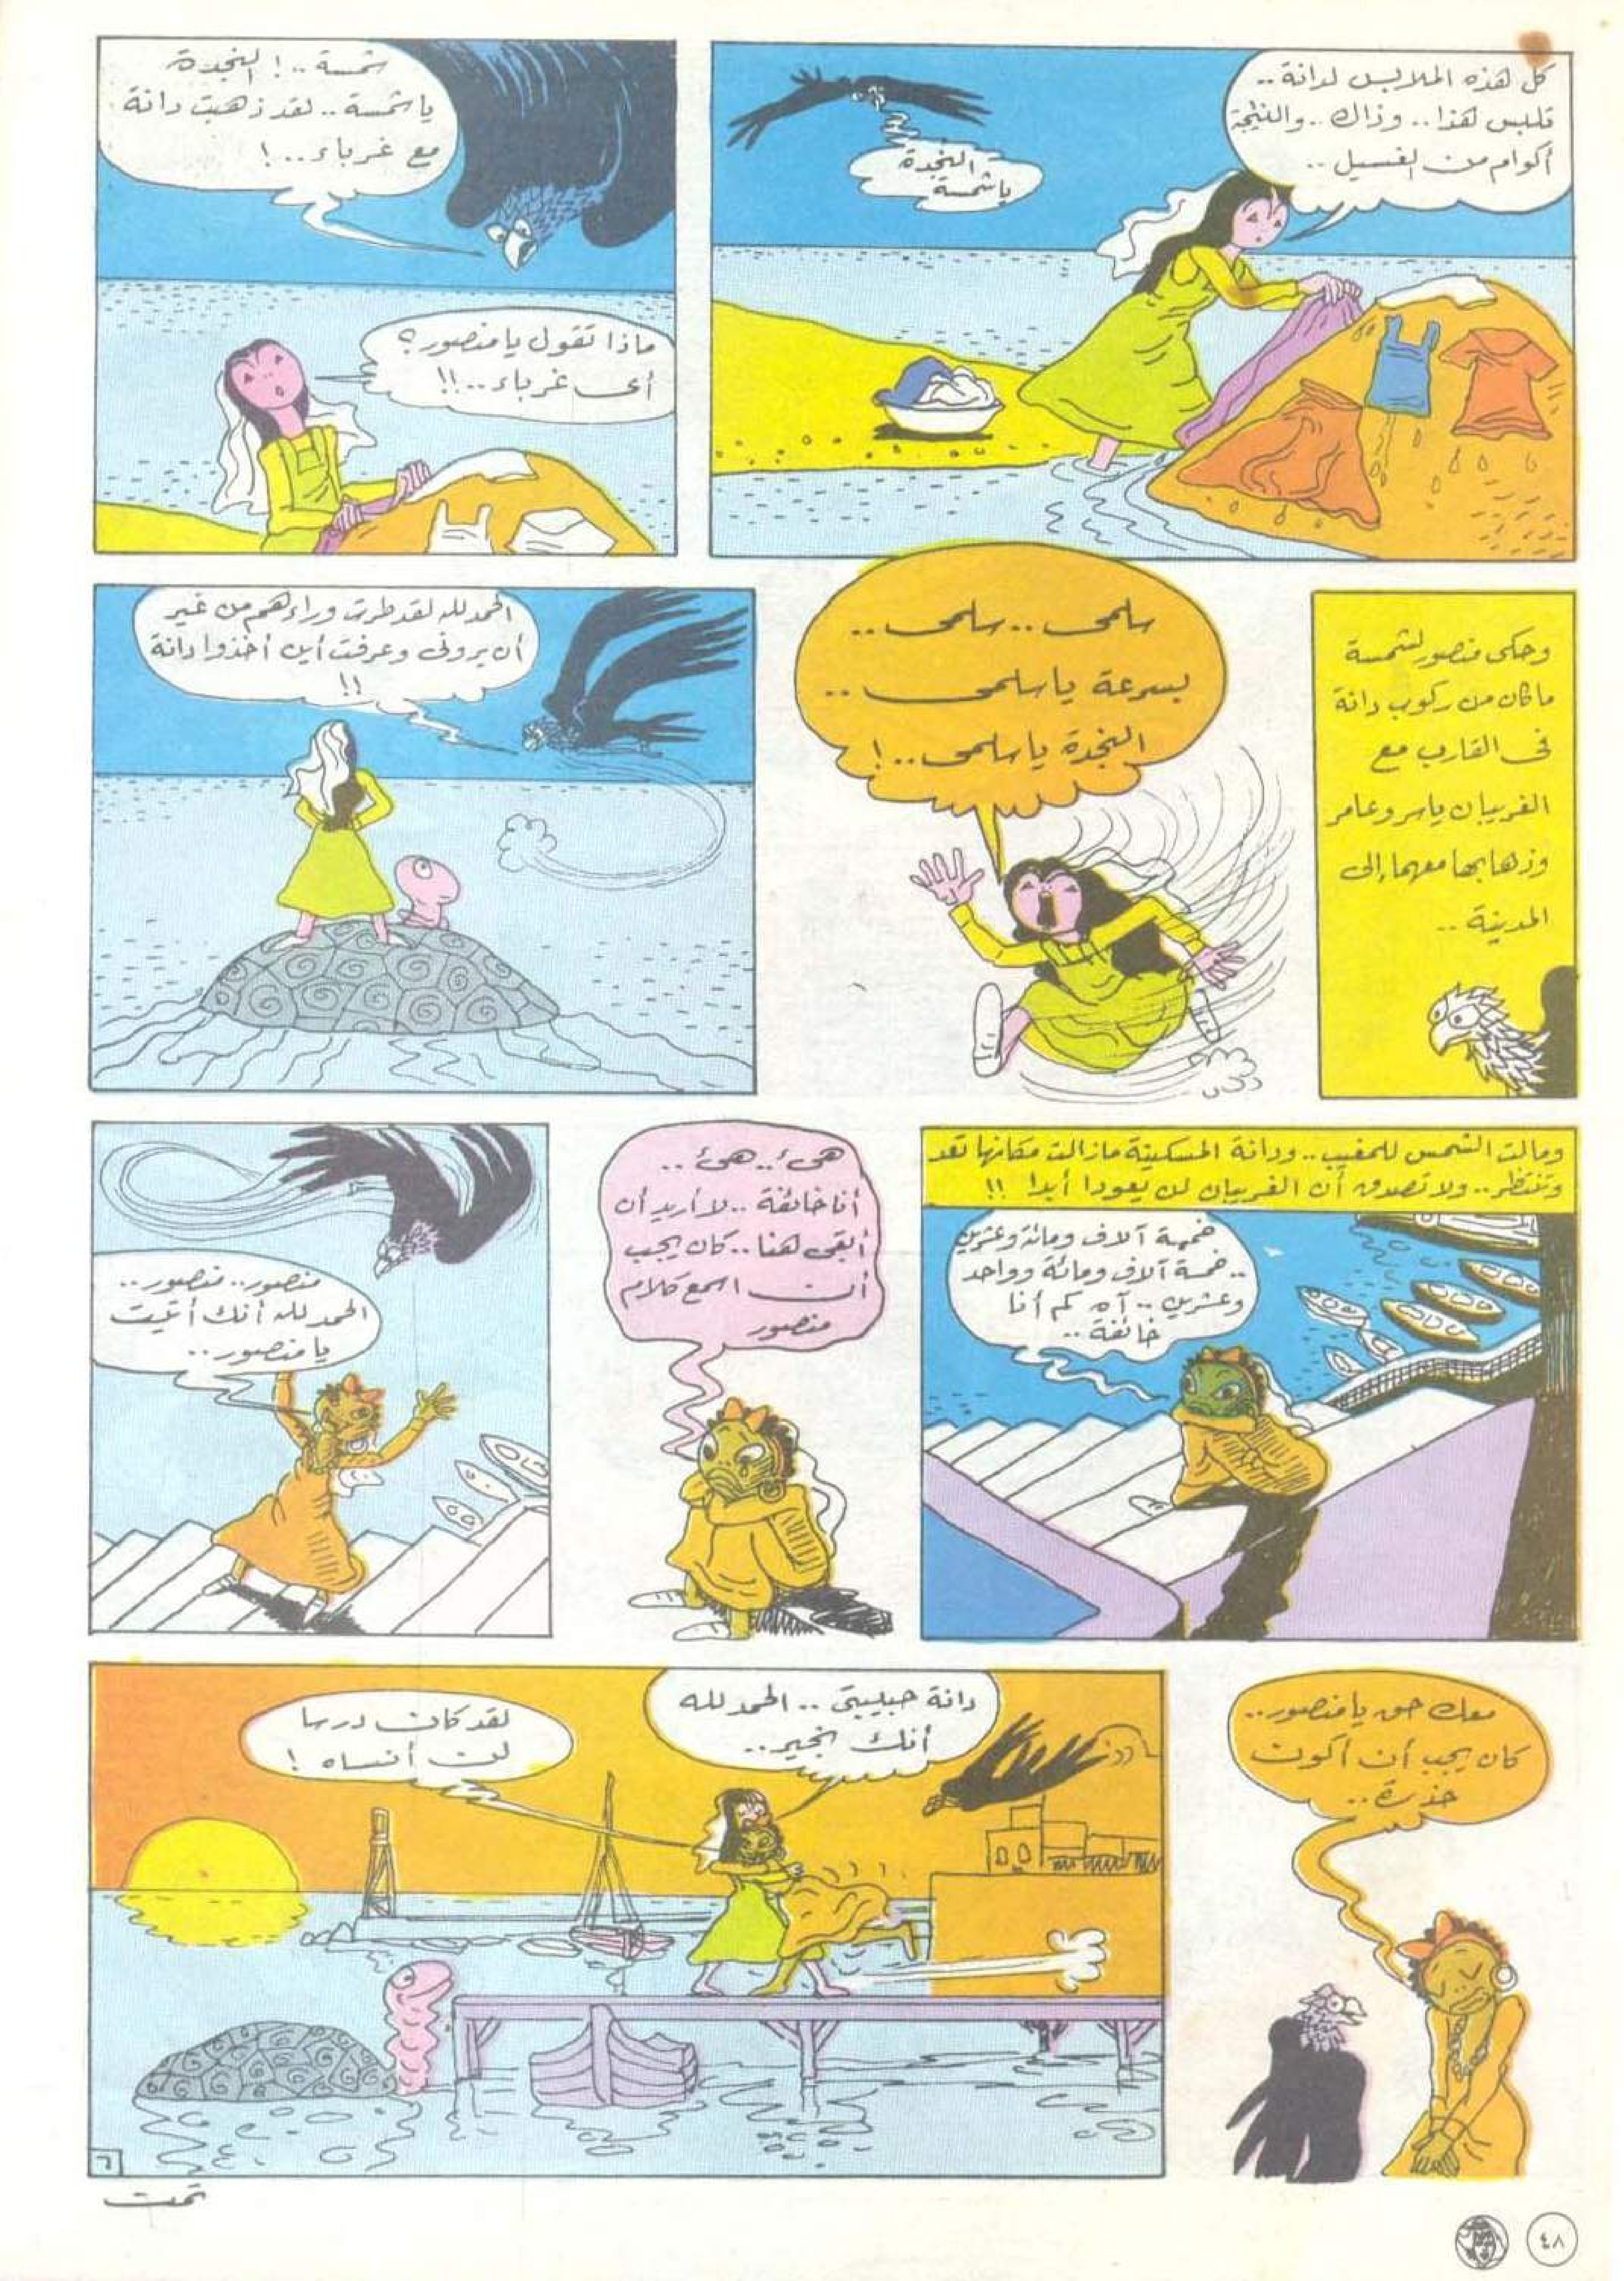 كل هذه الملابس لدانة ..
تلبس هذا .. وذاك .. والنتيجة
أكوام من الغسيل ..
النجدة
يا شمسة
شمسة .. ! النجدة
يا شمسة .. لقد ذهبت دانة
مع غرباء .. !
ماذا تقول يا منصور ؟
أى غرباء .. !!
وحكى منصور لشمسة
ما كان من ركوب دانة
فى القارب مع
الغريبان ياسر وعامر
وذهابها معهما إلى
المدينة ..
سلمى .. سلمى ..
بسرعة يا سلمى ..
النجدة يا سلمى .. !
الحمد لله لقد طرت وراءهم من غير
أن يرونى وعرفت أين أخذوا دانة
!!
ومالت الشمس للمغيب .. ودانة المسكينة مازالت مكانها تعد
وتنتظر .. ولا تصدق أن الغريبان لن يعودا أبدا !!
خمسة آلاف ومائة وعشرين
.. خمسة آلاف ومائة وواحد
وعشرين .. آه كم أنا
خائفة ..
هئ .. هئ ..
أنا خائفة .. لا أريد أن
أبقى هنا .. كان يجب
أن اسمع كلام
منصور
منصور .. منصور ..
الحمد لله أنك أتيت
يا منصور ..
معك حق يا منصور ..
كان يجب أن أكون
حذرة ..
دانة حبيبتى .. الحمد لله
أنك بخير ..
لقد كان درسا
لن أنساه !
٦
تمت
٤٨